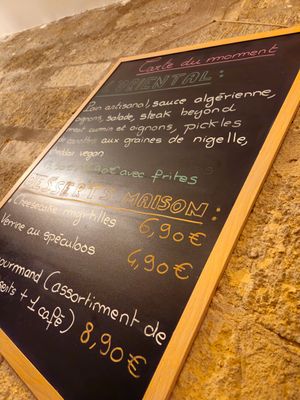 Carte du morment
ORIENTAL :
Pain artisanal, sauce algérienne,
oignons, salade, steak beyond
meat cumin et oignons, pickles
carottes aux graines de nigelle,
vegan
avec frites
DESSERTS MAISON :
Cheesecake myrtilles 6,90€
Verrine au spéculoos 4,90€
Gourmand (assortiment de
+ 1 café) 8,90€